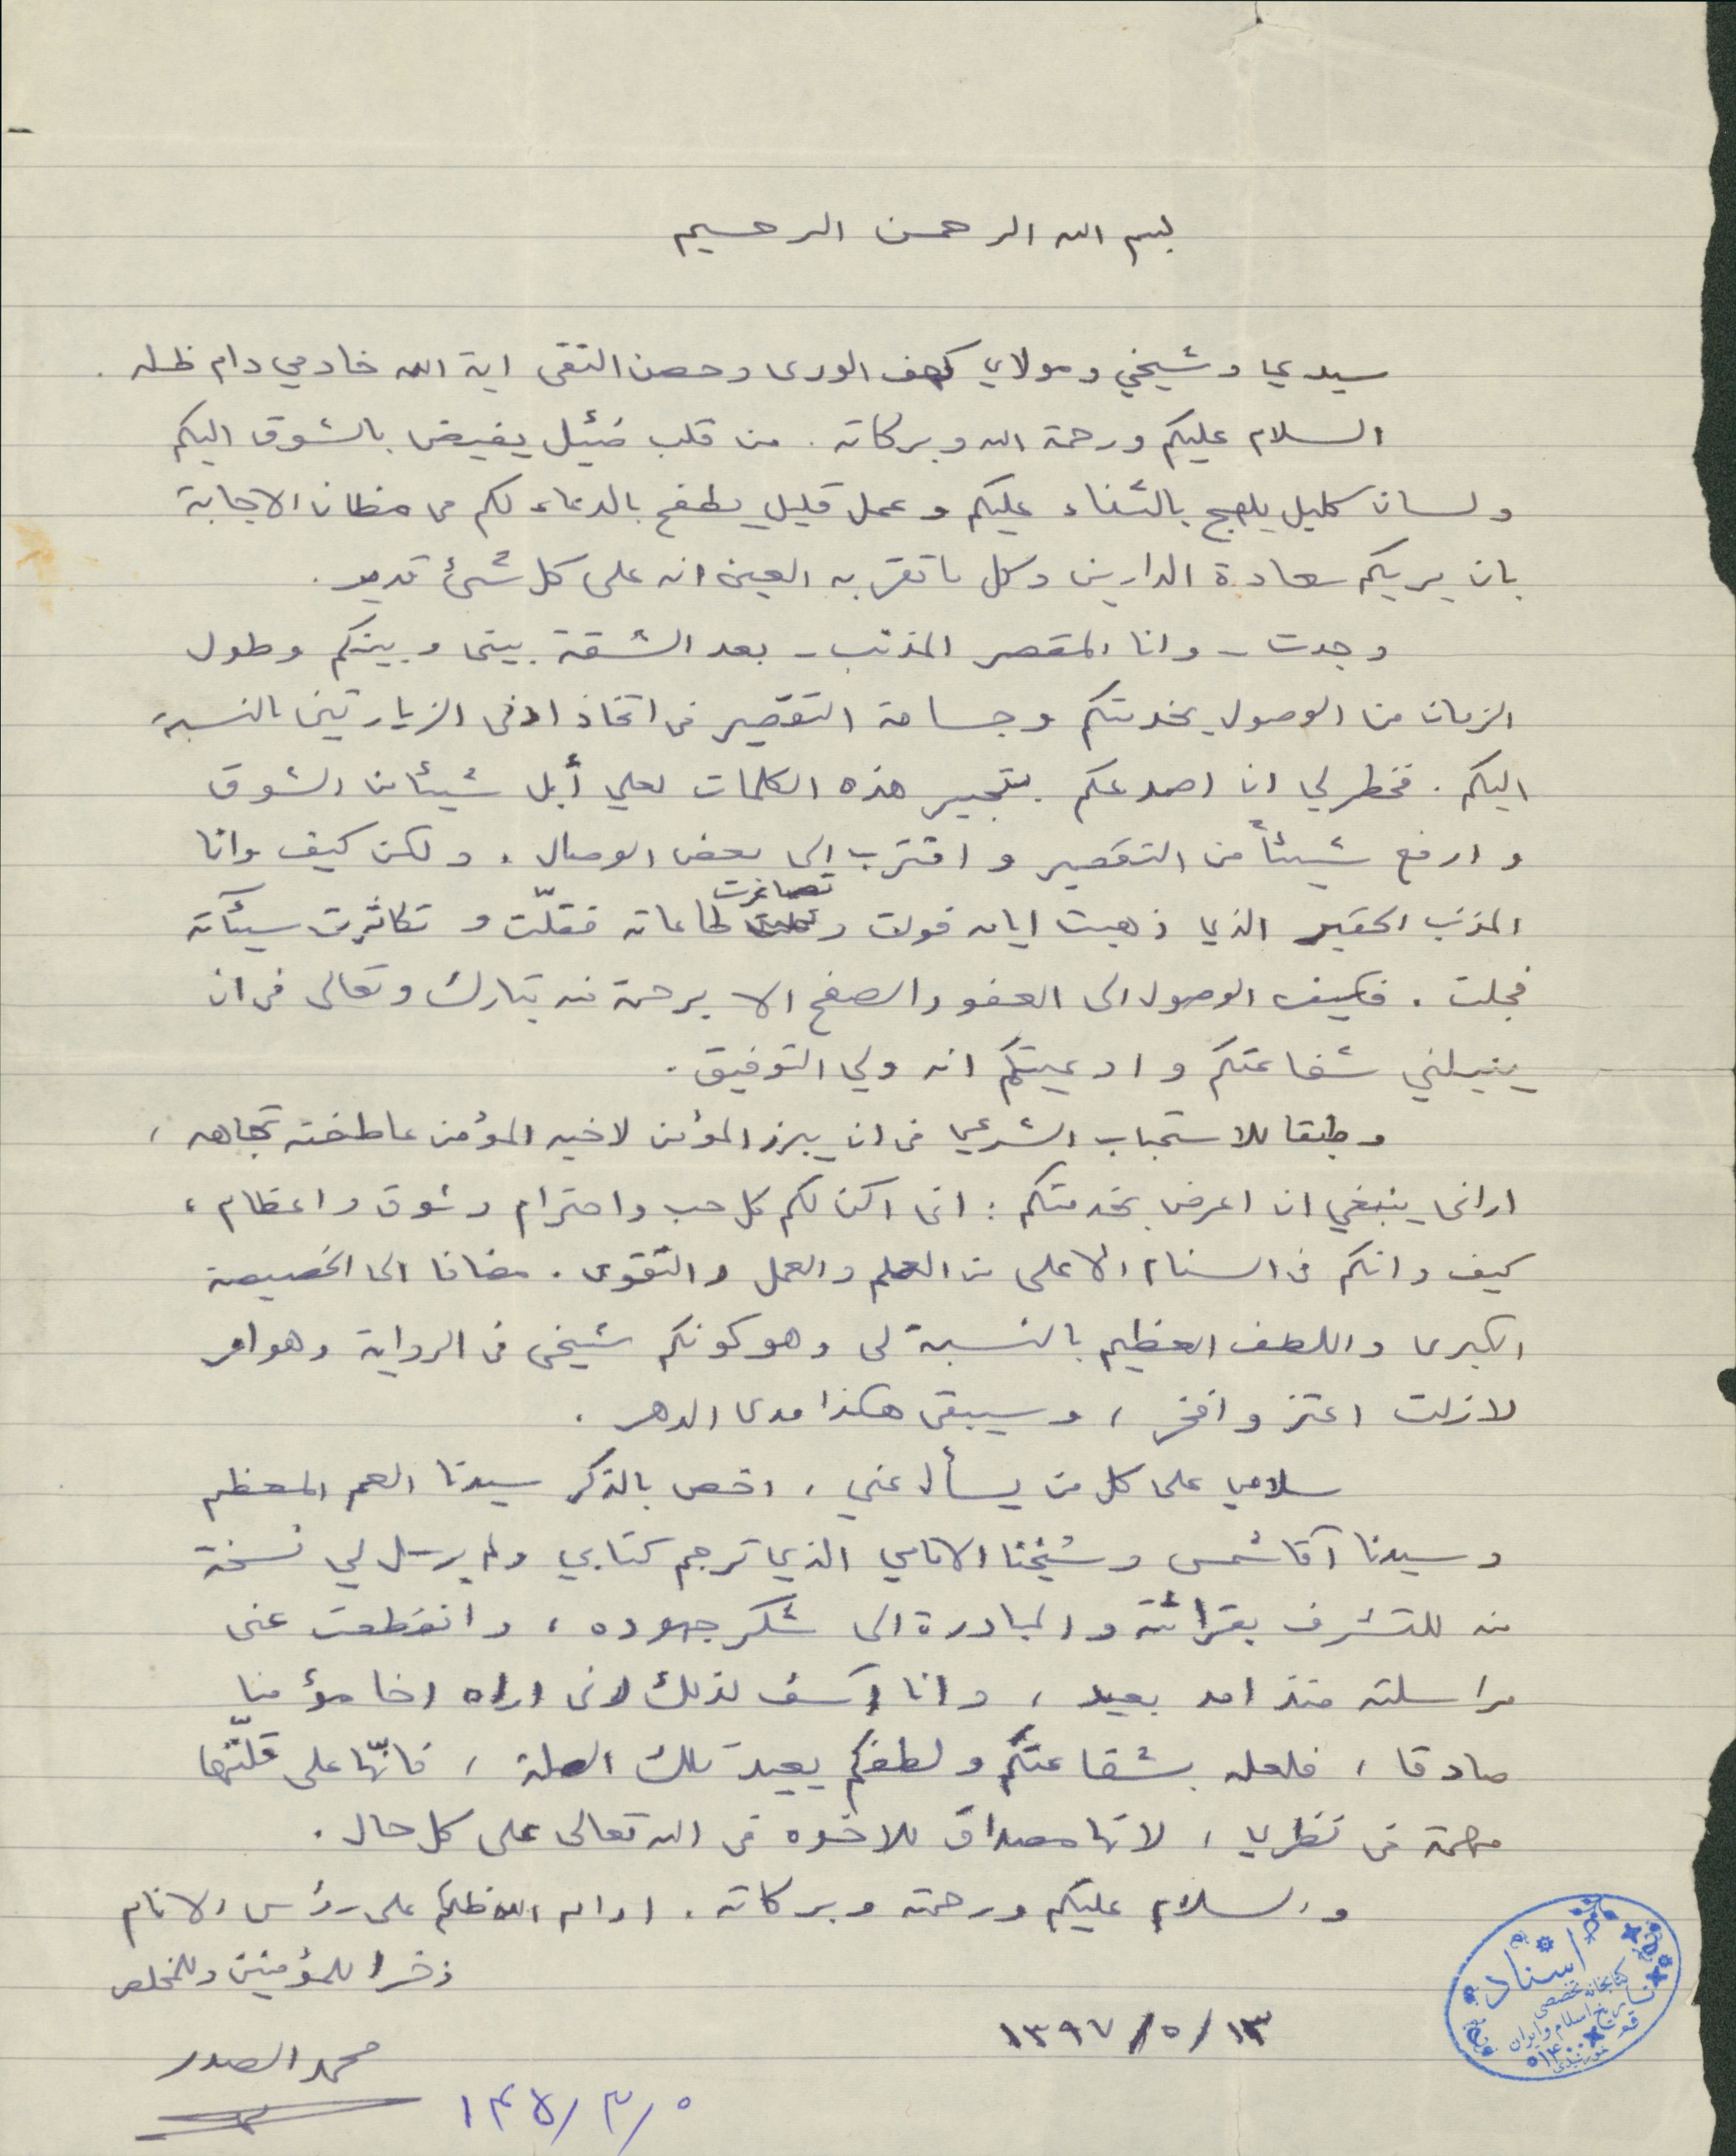 بسم الله الرحمن الرحيم
سيدي وشيخي ومولاي كهف الورى وحصن التقى اية الله خادمي دام ظله .
السلام عليكم ورحمة الله وبركاته . من قلب ضئيل يفيض بالشوق اليكم
ولسان كليل يلهج بالثناء عليكم وعمل قليل يطفح بالدعاء لكم في مظان الاجابة
بان يريكم سعادة الدارين وكل ما تقر به العين انه على كل شئ قدير .
وجدت - وانا المقصر المذنب - بعد الشقة بيني وبينكم وطول
الزمان من الوصول بخدمتكم وجسامة التقصير في اتخاذ ادنى الزيارتين بالنسبة
اليكم . فخطر لي ان اصدعكم بتحبير هذه الكلمات لعلي أبل شيئا من الشوق
وارفع شيئاً من التقصير واقترب الى بعض الوصال . ولكن كيف وانا
المذنب الحقير الذي ذهبت ايامه فولت و تصاغرت طاعاته فقلّت وتكاثرت سيئآته
فجلت . فكيف الوصول الى العفو والصفح الا برحمة منه تبارك وتعالى في ان
ينيلني شفاعتكم وادعيتكم انه ولي التوفيق .
وطبقا للاستحباب الشرعي في ان يبرز المؤمن لاخيه المؤمن عاطفته تجاهه ،
اراني ينبغي ان اعرض بخدمتكم : اني اكن لكم كل حب واحترام وشوق واعظام ،
كيف وانكم في السنام الاعلى من العلم والعمل والتقوى . مضافا الى الخصيصة
الكبرى واللطف العظيم بالنسبة لي وهو كونكم شيخي في الرواية وهو امر
لا زلت اعتز وافخر ، وسيبقى هكذا مدى الدهر .
سلامي على كل من يسأل عني ، اخص بالذكر سيدنا العم المعظم
وسيدنا آقا شمس وشيخنا الامامي الذي ترجم كتابي ولم يرسل لي نسخة
منه للتشرف بقرائته والمبادرة الى شكر جهوده ، وانقطعت عني
مراسلته منذ امد بعيد ، وانا آسف لذلك لاني اراه اخا مؤمنا
صادقا ، فلعله بشفاعتكم ولطفكم يعيد تلك الصلة ، فانّها على قلّتها
مهمة في نظري ، لانها مصداق للاخوه في الله تعالى على كل حال .
والسلام عليكم ورحمة وبركاته . ادام الله ظلكم على رؤس الانام
ذخرا للمؤمنين وللمخلص
١٣/٥/١٣٩٧
محمد الصدر
اسناد
كتابخانه تخصصى
تاريخ اسلام وايران
قم